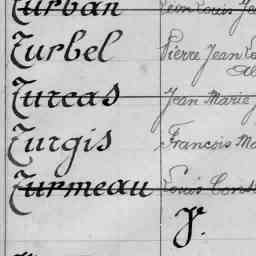 Turban Léon Louis Je
Turbel Pierre Jean
Turcas Jean Marie
Turgis François Ma
Turmeau Louis Const